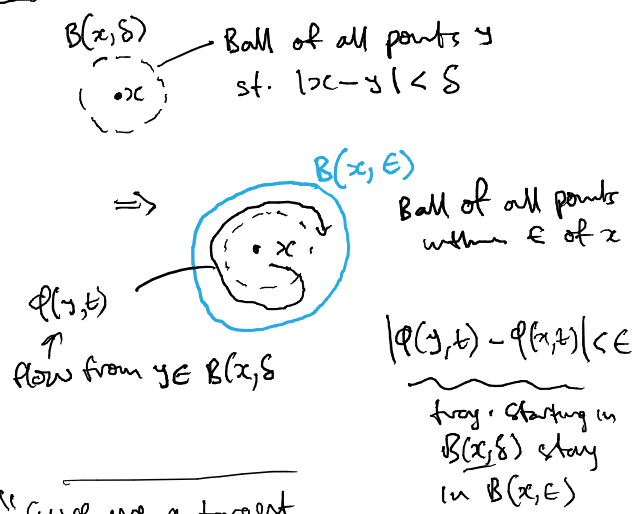 B(x,δ)
Ball of all points y
st. |x-y| < δ
x
B(x, ϵ)
⇒
Ball of all points
within ϵ of x
x
φ(y,t)
|φ(y,t) - φ(x,t)| < ϵ
flow from y ∈ B(x,δ
traj. starting in
B(x,δ) stay
in B(x,ϵ)